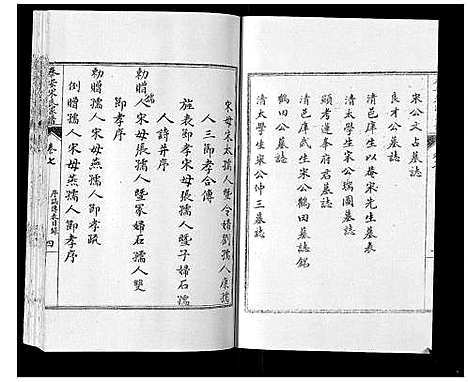 宋公文占墓誌
良才公墓誌
清邑庠生以庵宋先生墓表
清太學生宋公瑞圃墓誌
顯考蓮峯府君墓誌
清邑庠武生宋公鶴田墓誌銘
鶴田公墓誌
清太學生宋公仲三墓誌
宋母朱太孺人暨令婦劉孺人康孺
人三節孝合傳
旌表節孝宋母張孺人暨子婦石孺
人詩并序
勅贈孺人宋母張孺人暨冢婦石孺人雙
節孝序
勅贈孺人宋母燕孺人節孝疏
例贈孺人宋母燕孺人節孝序
泰安宋氏家譜
卷七
序誌傳表目錄
四